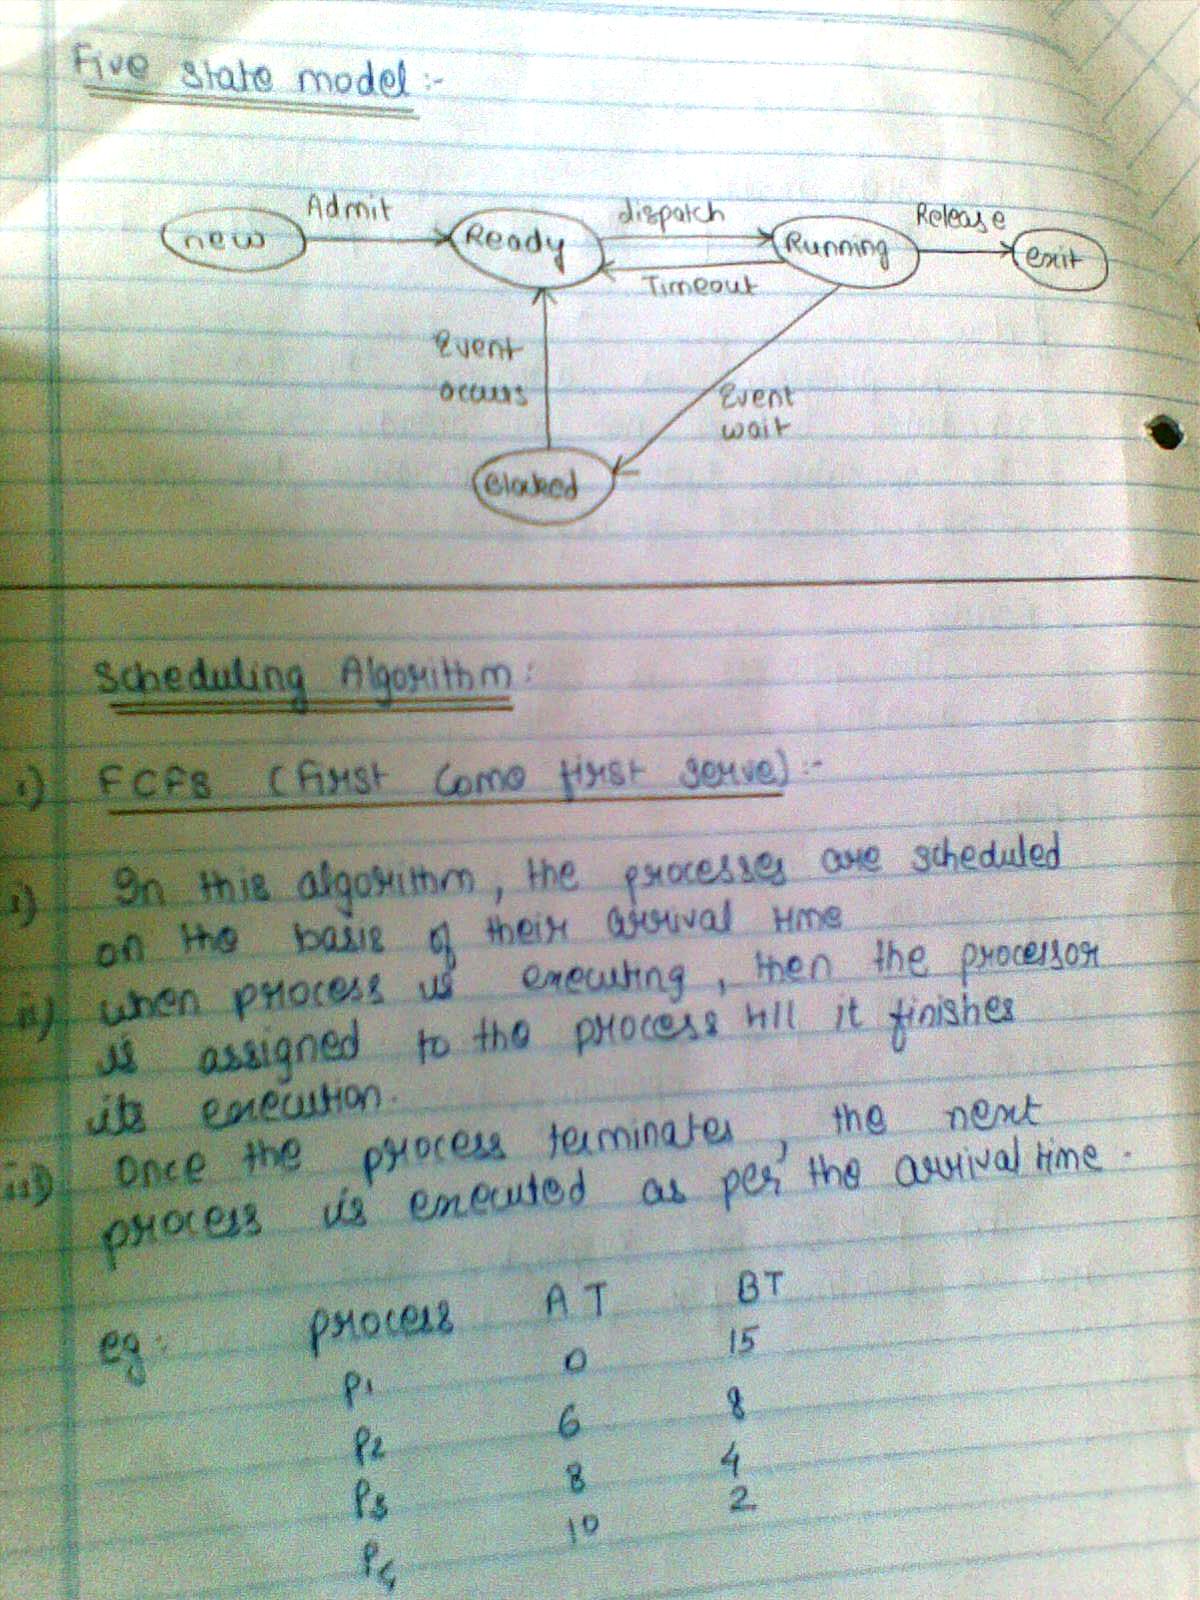 Five state model :-
Admit
dispatch
Release
new
Ready
Running
exit
Timeout
Event
occurs
Event
wait
Blocked
Scheduling Algorithm :
1) FCFS (First Come first serve) :-
i) In this algorithm, the processes are scheduled
on the basis of their arrival time
ii) when process is executing, then the processor
is assigned to the process till it finishes
its execution.
iii) Once the process terminates, the next
process is executed as per the arrival time.
eg: process AT BT
P1 0 15
P2 6 8
P3 8 4
P4 10 2